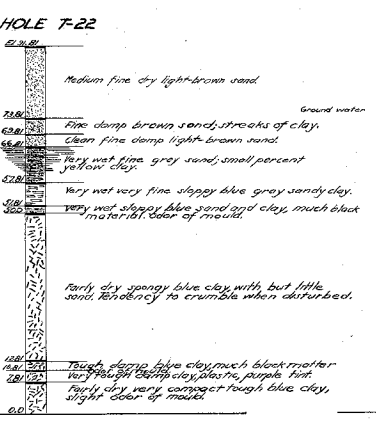 HOLE T-22
El. 91.81
Medium fine dry light-brown sand.
Ground water
73.81
Fine damp brown sand; streaks of clay.
69.81
Clean fine damp light-brown sand.
66.81
Very wet fine grey sand; small percent
yellow clay.
57.81
Very wet very fine sloppy blue gray sandy clay.
51.81
50.0
Very wet sloppy blue sand and clay, much black
material. Odor of mould.
Fairly dry spongy blue clay, with, but little
sand. Tendency to crumble when disturbed.
12.81
Tough damp blue clay, much black matter
10.81
Odor of mould.
Very tough damp clay, plastic, purple tint.
7.81
Fairly dry very compact tough blue clay,
slight odor of mould.
0.0